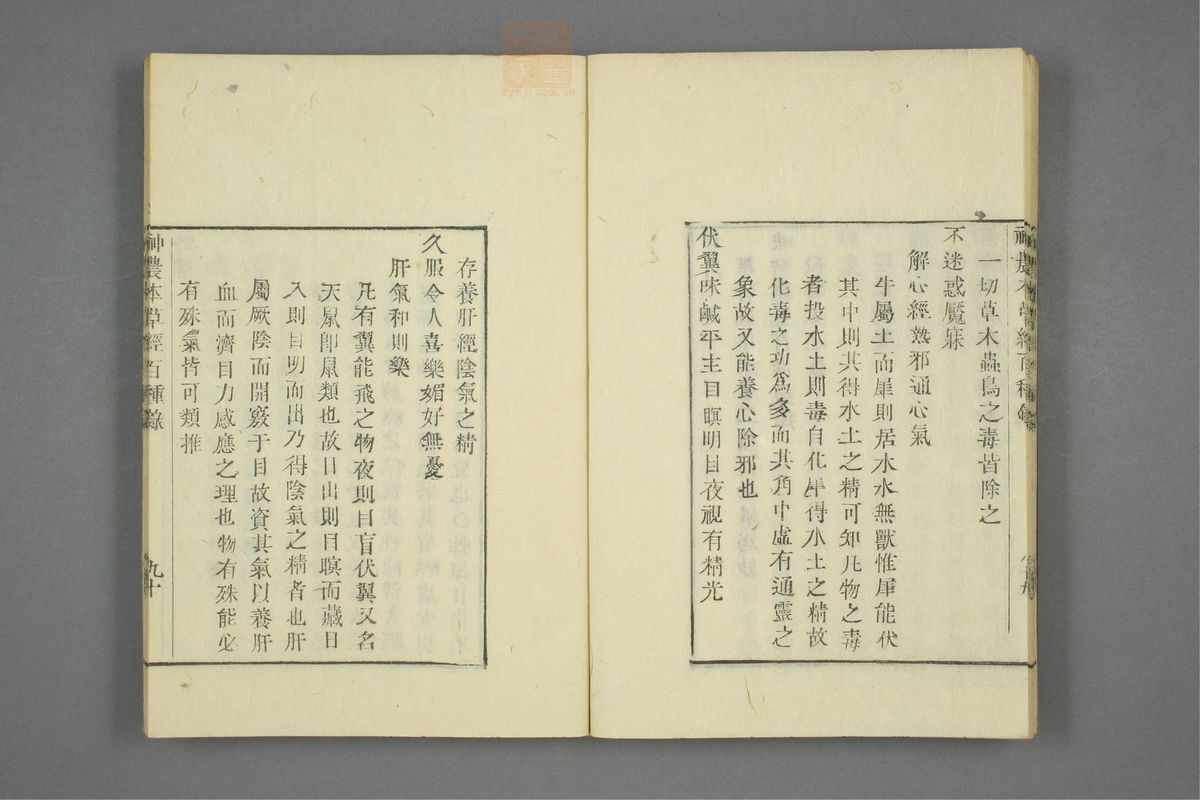 神農本草經百種錄
一切草木蟲鳥之毒皆除之
不迷惑魘寐
解心經熱邪通心氣
牛屬土而犀則居水水無獸惟犀能伏
其中則其得水土之精可知凡物之毒
者投水土則毒自化犀得水土之精故
化毒之功爲多而其角中虛有通靈之
象故又能養心除邪也
伏翼味鹹平主目瞑明目夜視有精光
存養肝經陰氣之精
久服令人喜樂媚好無憂
肝氣和則樂
凡有翼能飛之物夜則目盲伏翼又名
天鼠卽鼠類也故日出則目瞑而藏日
入則目明而出乃得陰氣之精者也肝
屬厥陰而開竅于目故資其氣以養肝
血而濟目力感應之理也物有殊能必
有殊氣皆可類推
神農本草經百種錄
九十
zysj.com.cn